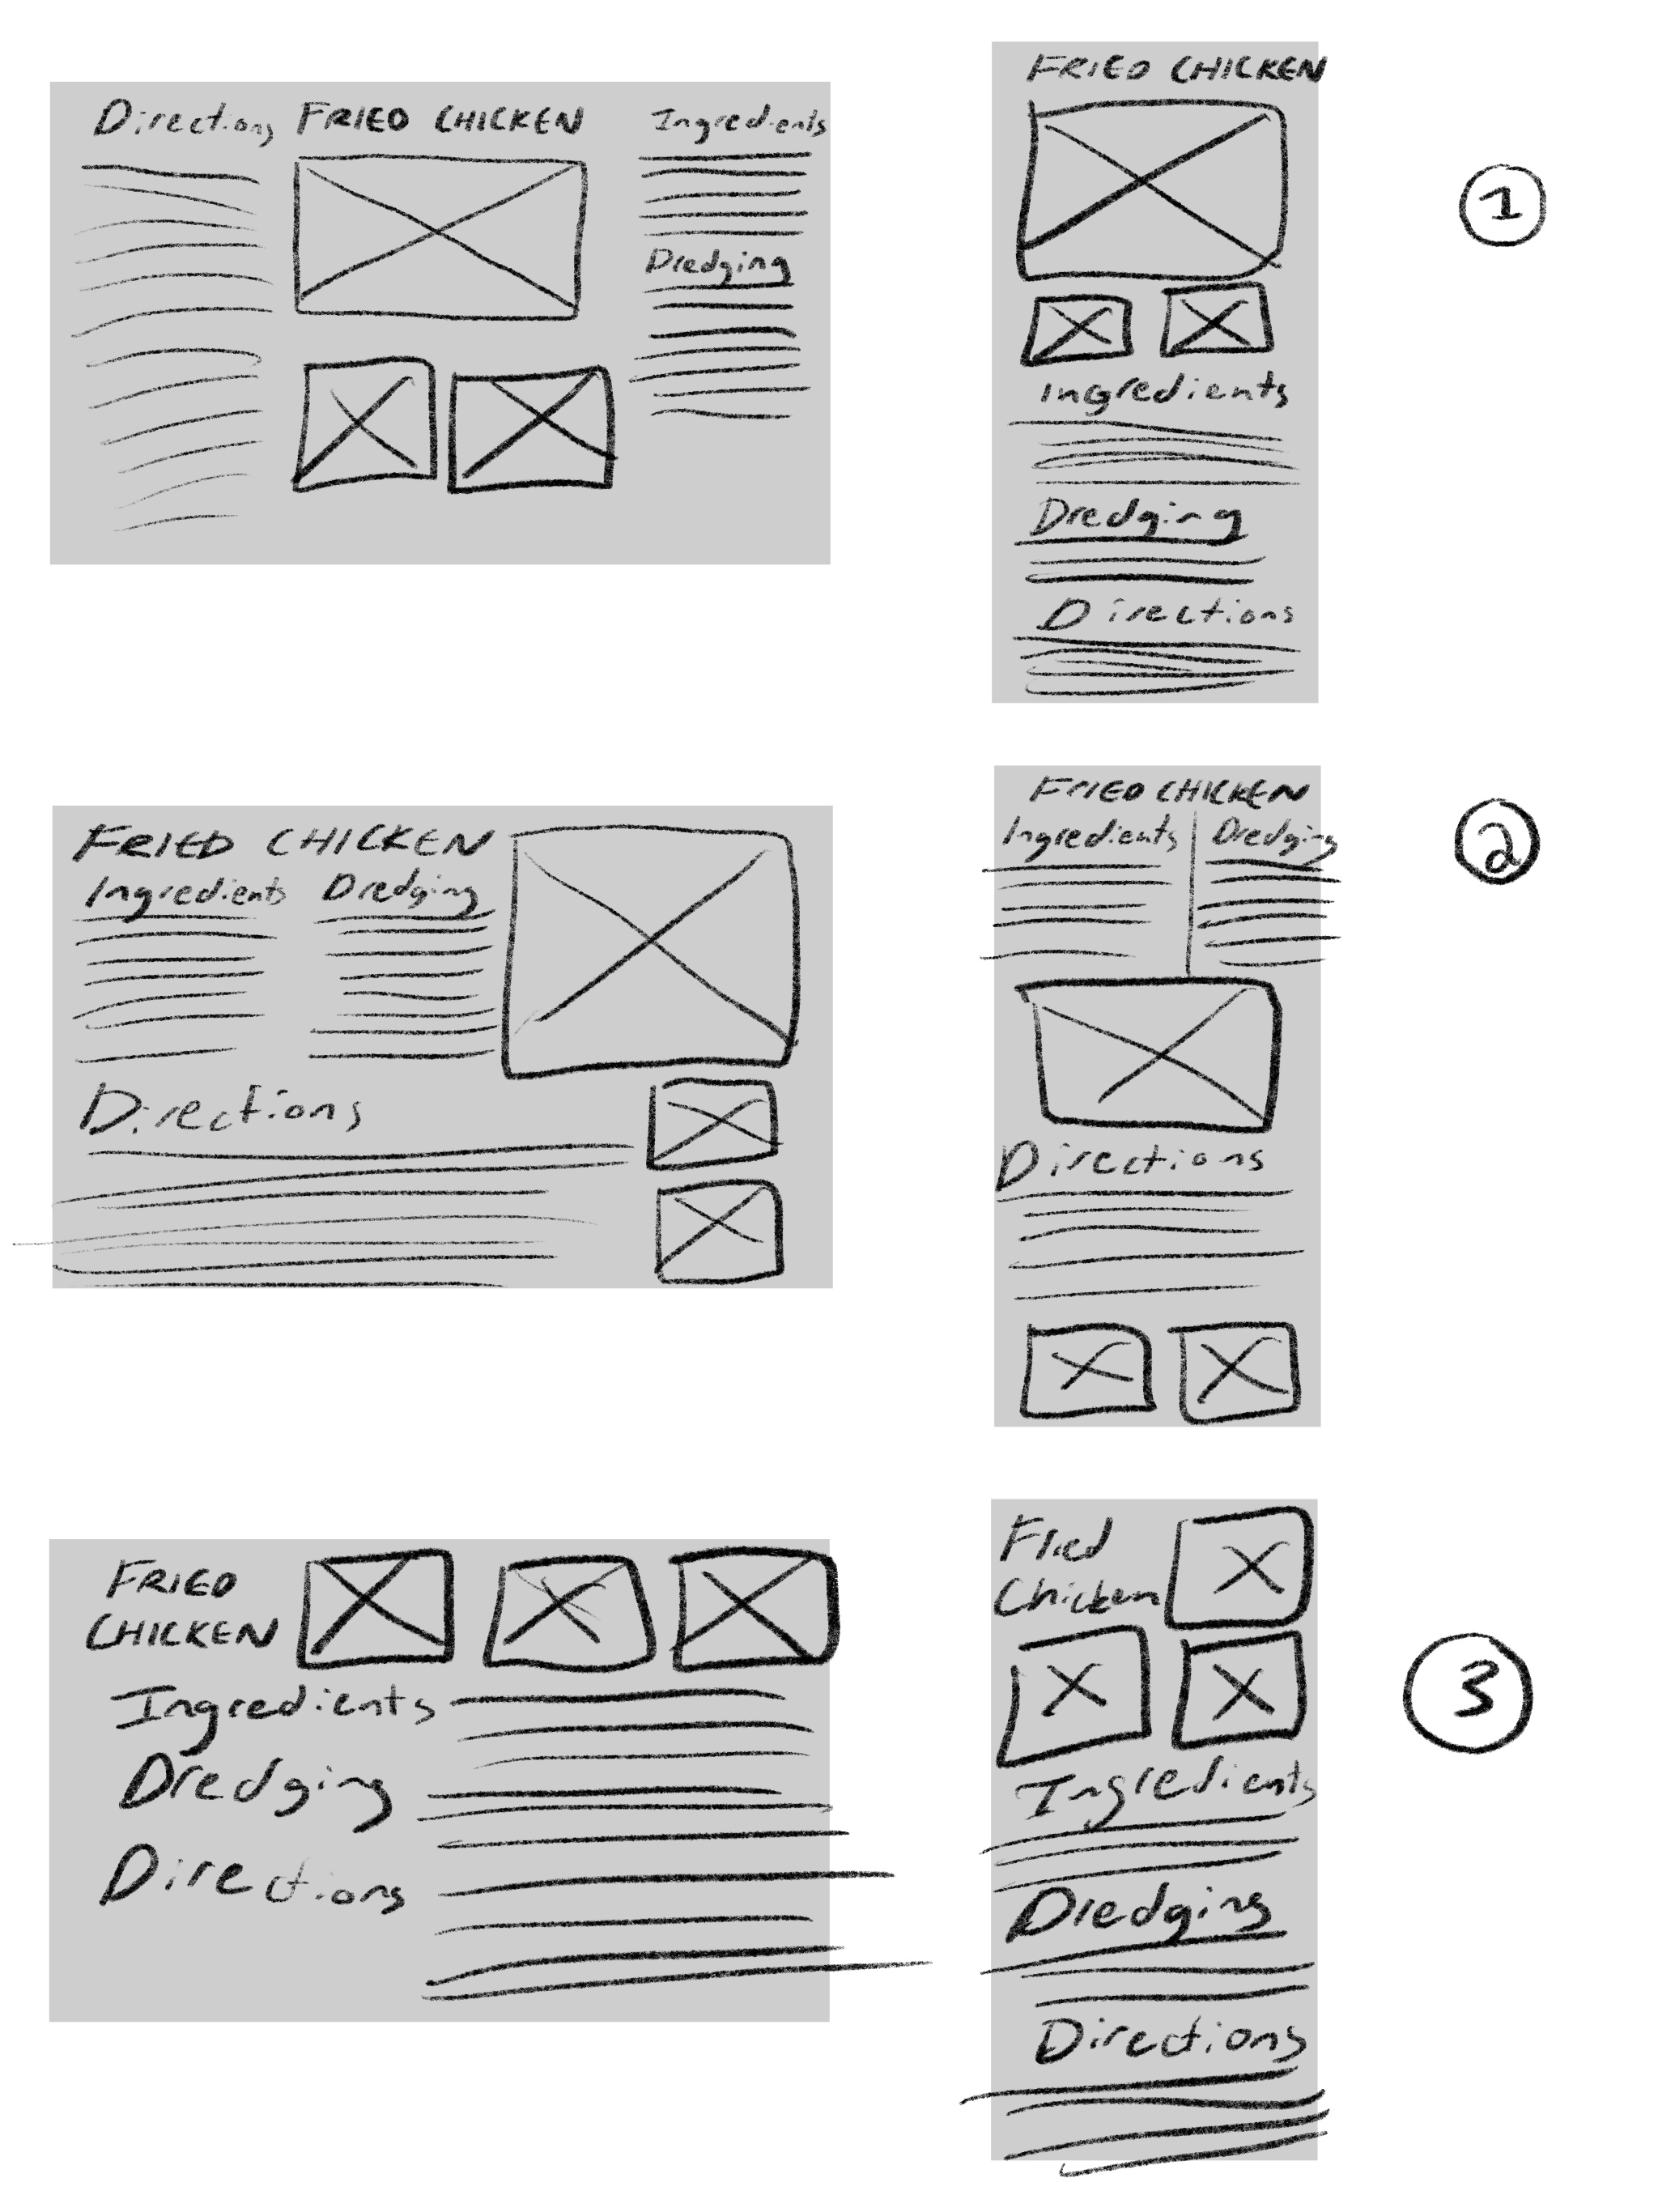 Directions FRIED CHICKEN Ingredients
Dredging
FRIED CHICKEN
Ingredients
Dredging
Directions
1
FRIED CHICKEN
Ingredients Dredging
Directions
FRIED CHICKEN
Ingredients Dredging
Directions
2
FRIED
CHICKEN
Ingredients
Dredging
Directions
Fried
Chicken
Ingredients
Dredging
Directions
3